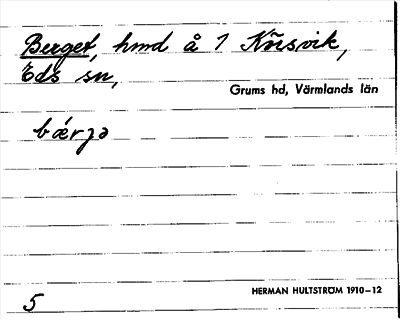 Berget, hmd å 1 Kñsvik,
Eds sn,
Grums hd, Värmlands län
bǽrjə
HERMAN HULTSTRÖM 1910–12
5